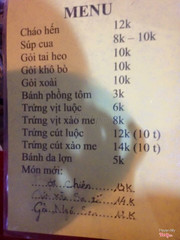 MENU
Cháo hến 12k
Súp cua 8k – 10k
Gỏi tai heo 10k
Gỏi khô bò 10k
Gỏi xoài 10k
Bánh phồng tôm 3k
Trứng vịt luộc 6k
Trứng vịt xáo me 8k
Trứng cút luộc 12k (10 t)
Trứng cút xào me 14k (10 t)
Bánh da lợn 5k
Món mới:
Chiên